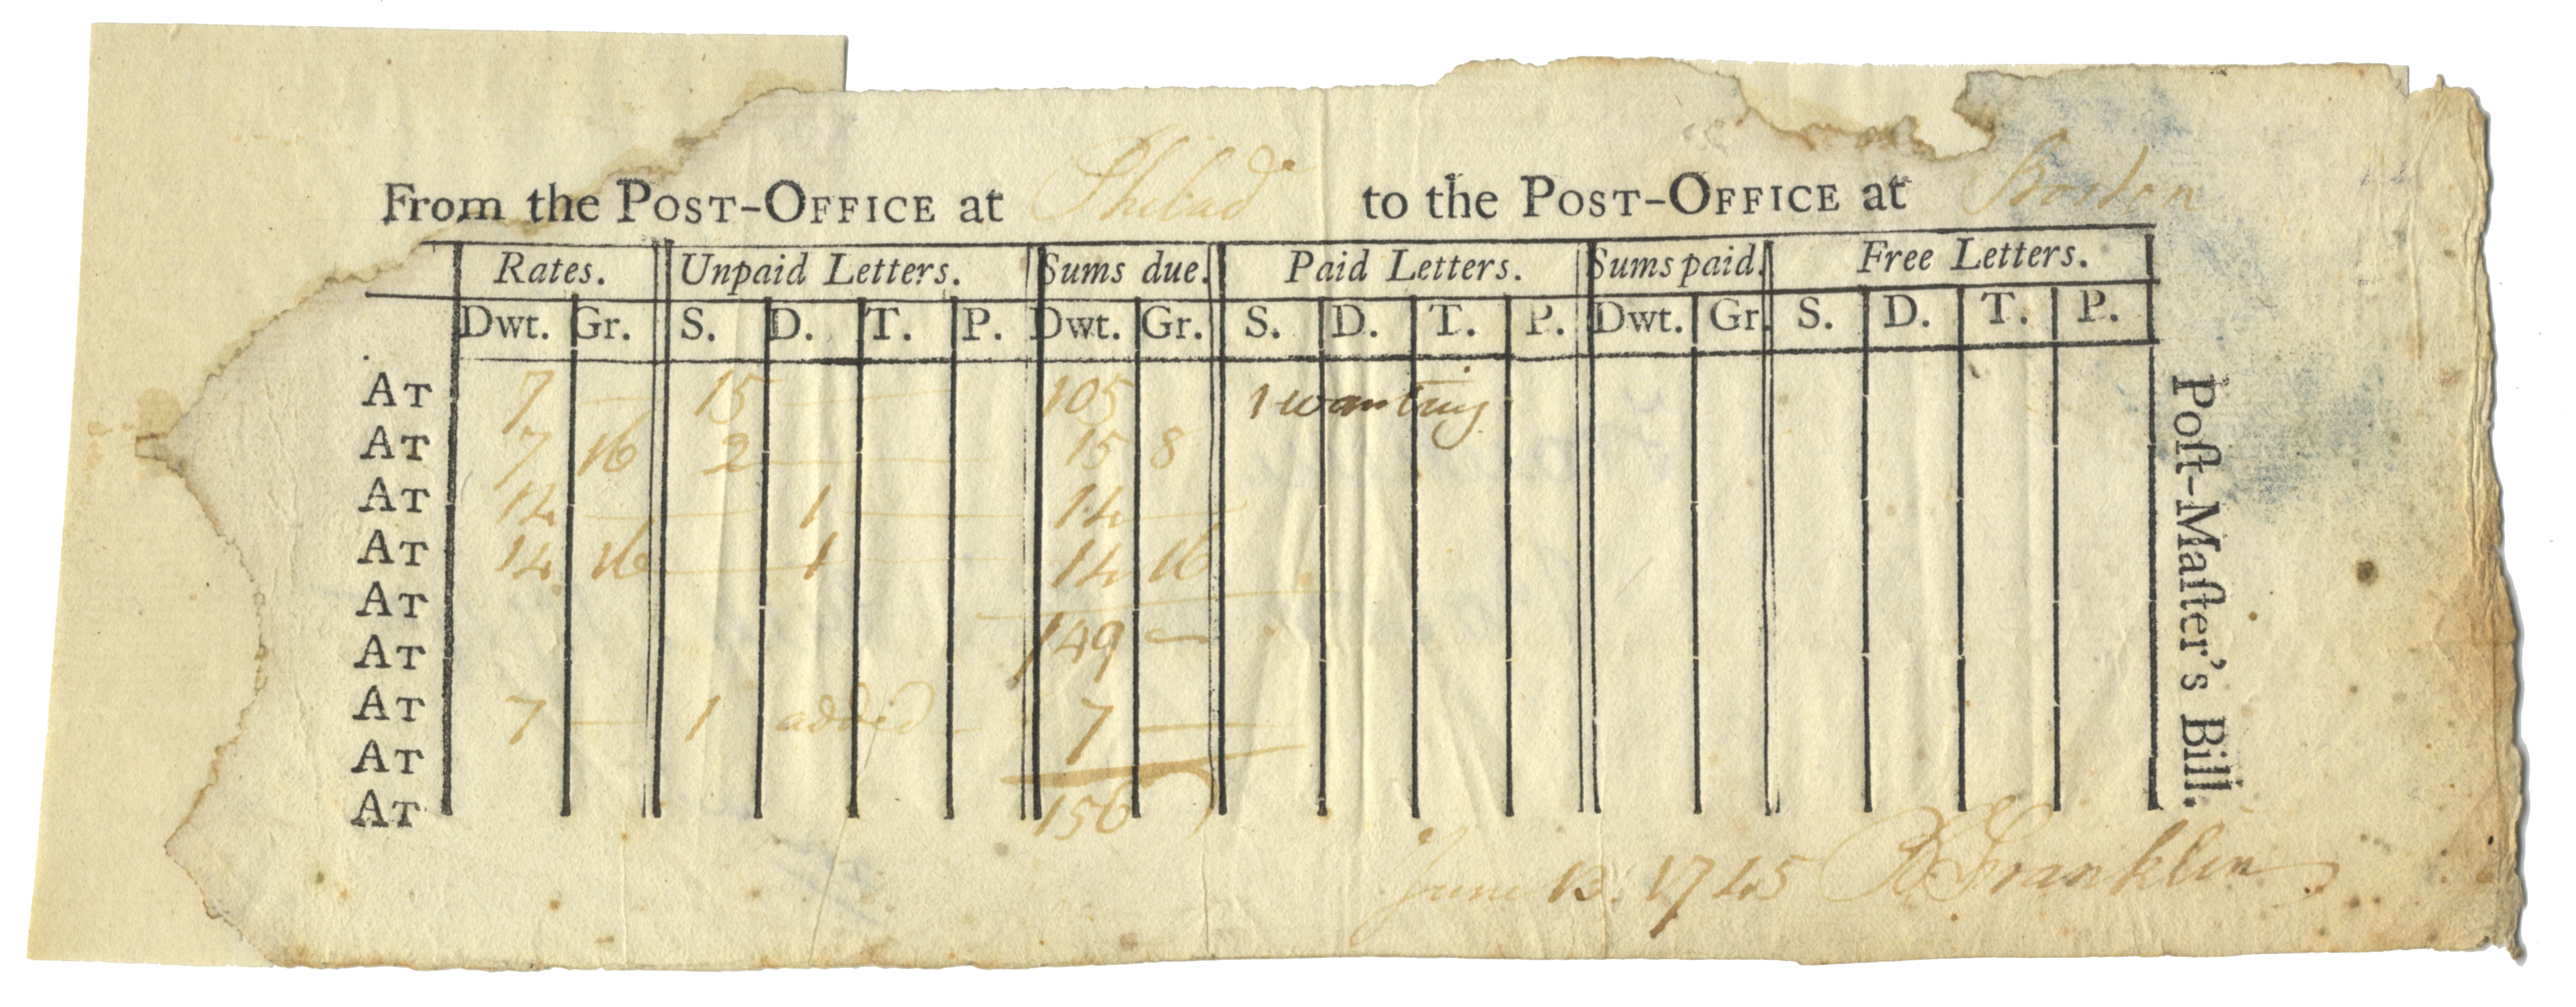 From the POST-OFFICE at Philad^a to the POST-OFFICE at Boston
Rates. Unpaid Letters. Sums due. Paid Letters. Sums paid. Free Letters.
Dwt. Gr. S. D. T. P. Dwt. Gr. S. D. T. P. Dwt. Gr. S. D. T. P.
AT 7 — 15 — 105 1 wanting
AT 7 16 2 — 15 8
AT 14 — 1 — 14 —
AT 14 16 — 1 — 14 16
AT
AT 149 —
AT 7 — 1 added — 7 —
AT
AT 156
June 13. 1745 B Franklin
Poſt-Maſter's Bill.